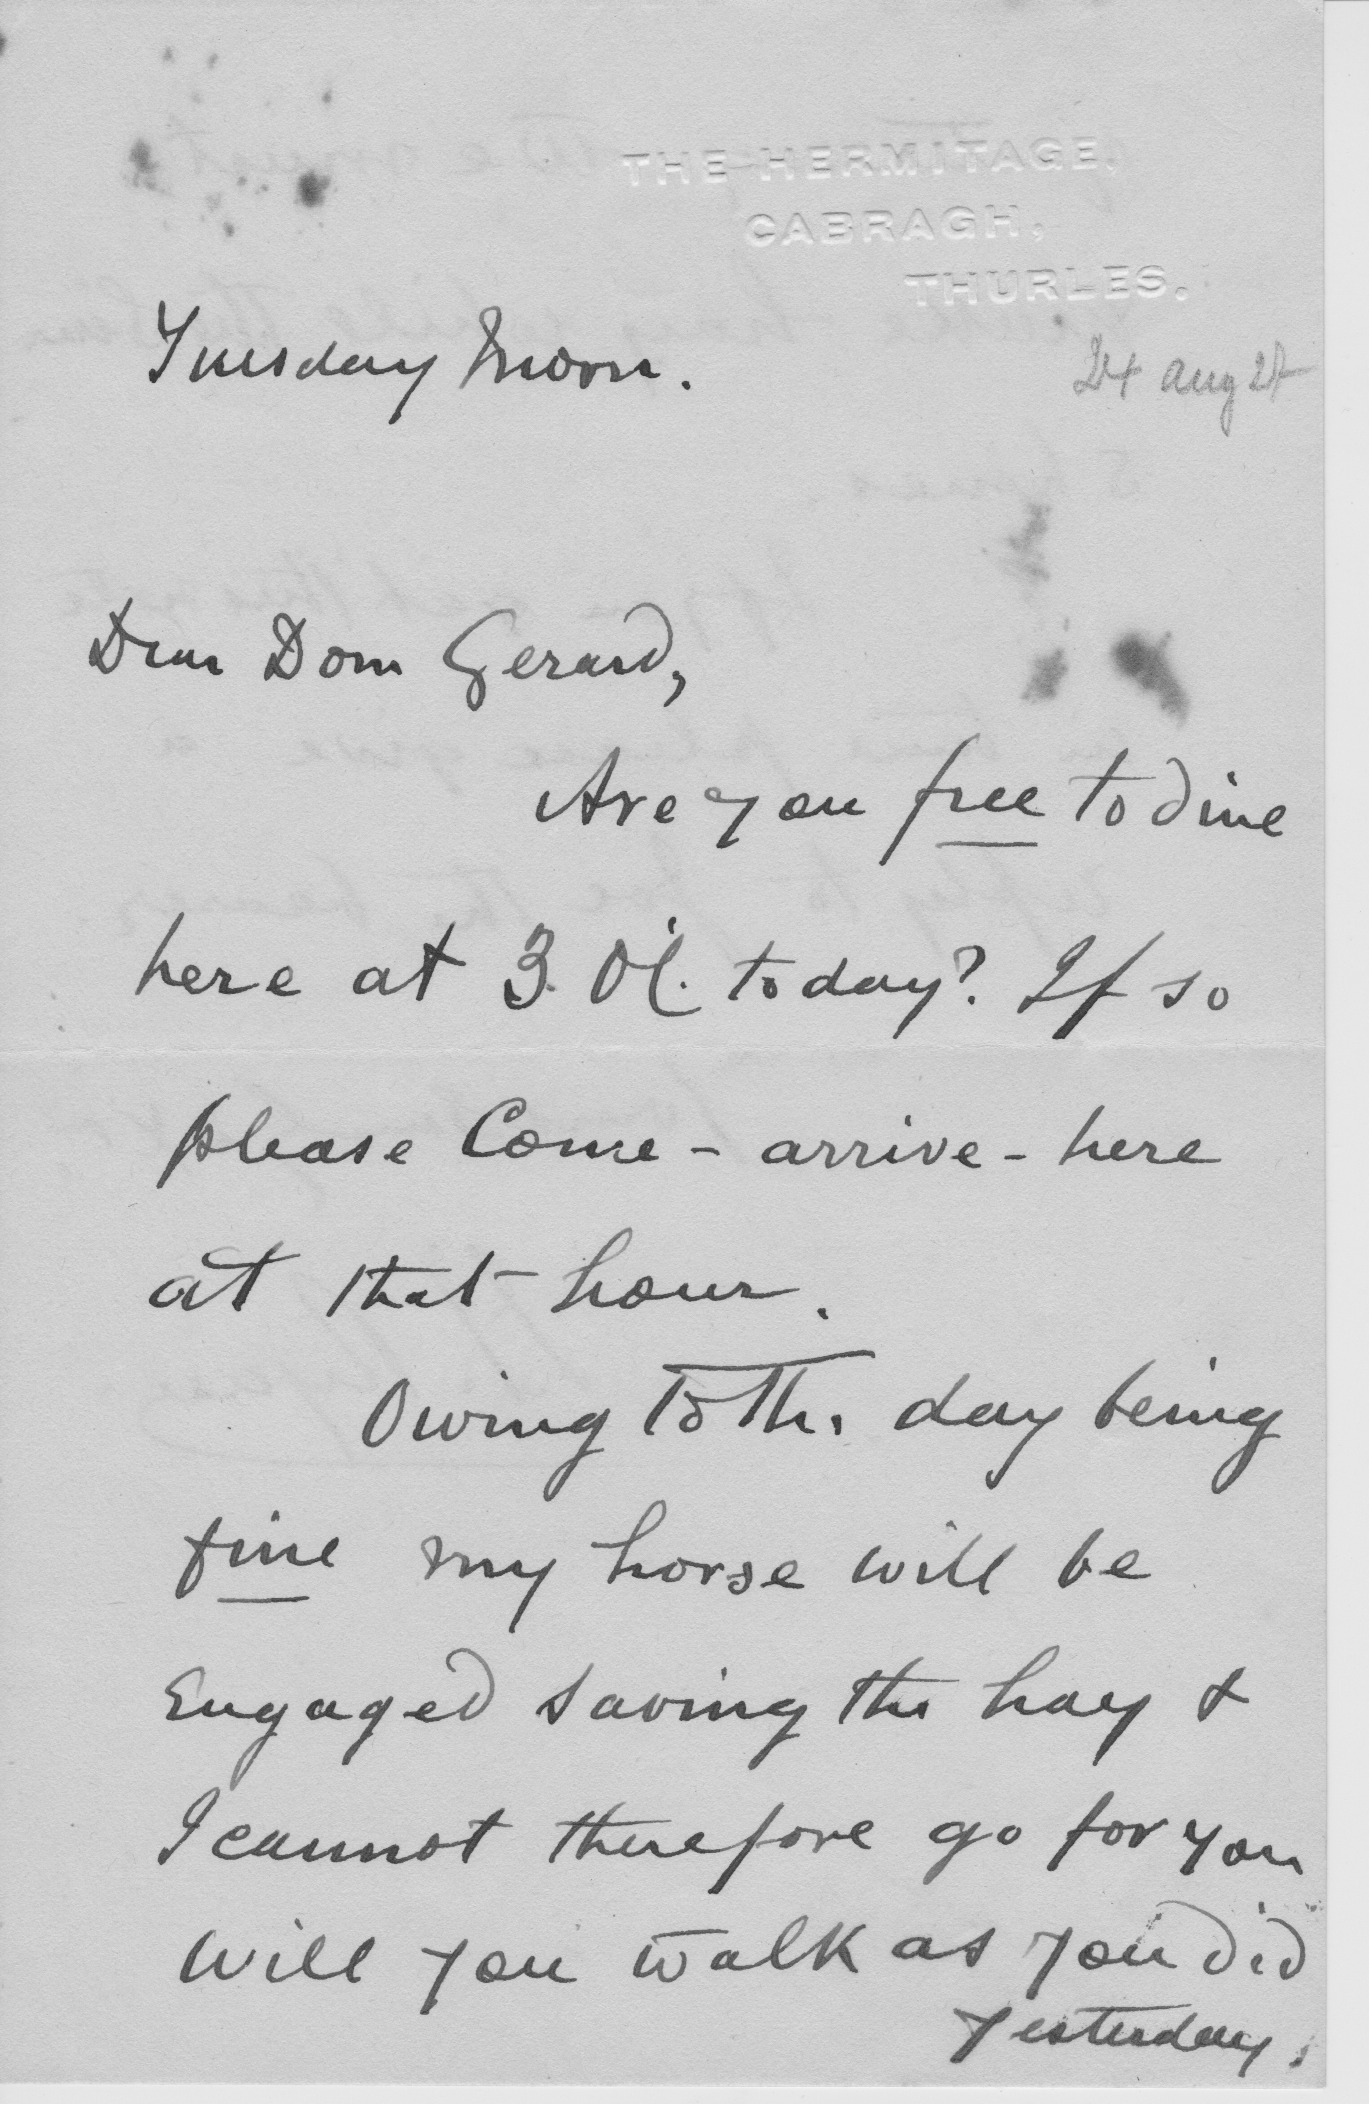 THE HERMITAGE,
CABRAGH,
THURLES.
Tuesday Morn.
24 Aug 27
Dear Dom Gerard,
Are you free to dine
here at 3. O'C. today? If so
please Come - arrive - here
at that hour.
Owing to th. day being
fine my horse will be
Engaged saving the hay &
I cannot therefore go for you
Will you walk as you did
yesterday.